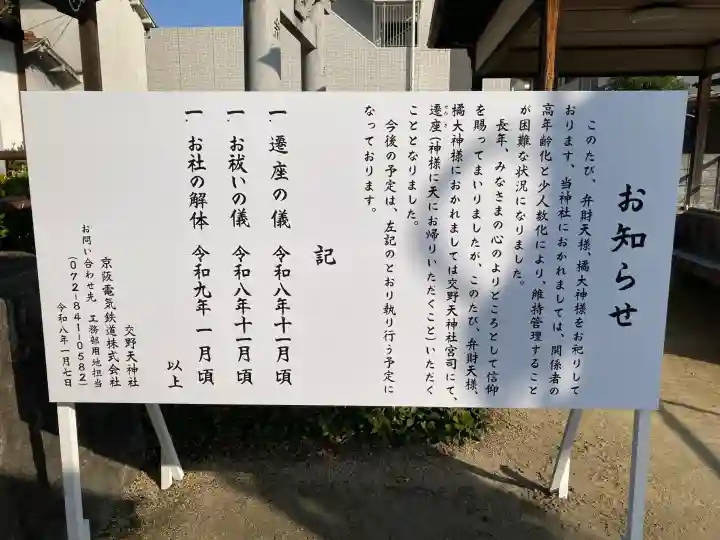 お知らせ
このたび、弁財天様、橘大神様をお祀りして
おります、当神社におかれましては、関係者の
高年齢化と少人数化により、維持管理すること
が困難な状況になりました。
長年、みなさまの心のよりどころとして信仰
を賜ってまいりましたが、このたび、弁財天様、
橘大神様におかれましては交野天神社宮司にて、
遷座(神様に天にお帰りいただくこと)いただく
こととなりました。
今後の予定は、左記のとおり執り行う予定に
なっております。
記
一.遷座の儀 令和八年十一月頃
一.お祓いの儀 令和八年十一月頃
一.お社の解体 令和九年一月頃
以上
交野天神社
京阪電気鉄道株式会社
お問い合わせ先 工務部用地担当
(072-841-0582)
令和八年一月七日